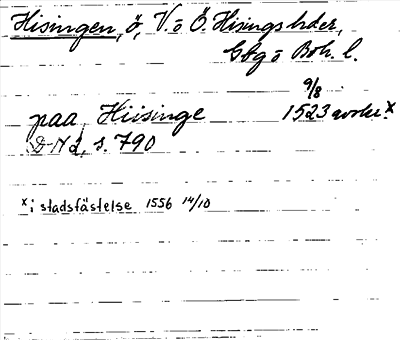 Hisingen, ö, V. o Ö. Hisings hder,
Gbg o Boh. l.
paa Hiisinge 9/8 1523 avskr.x
DN 2, s. 790
x i stadsfästelse 1556 14/10